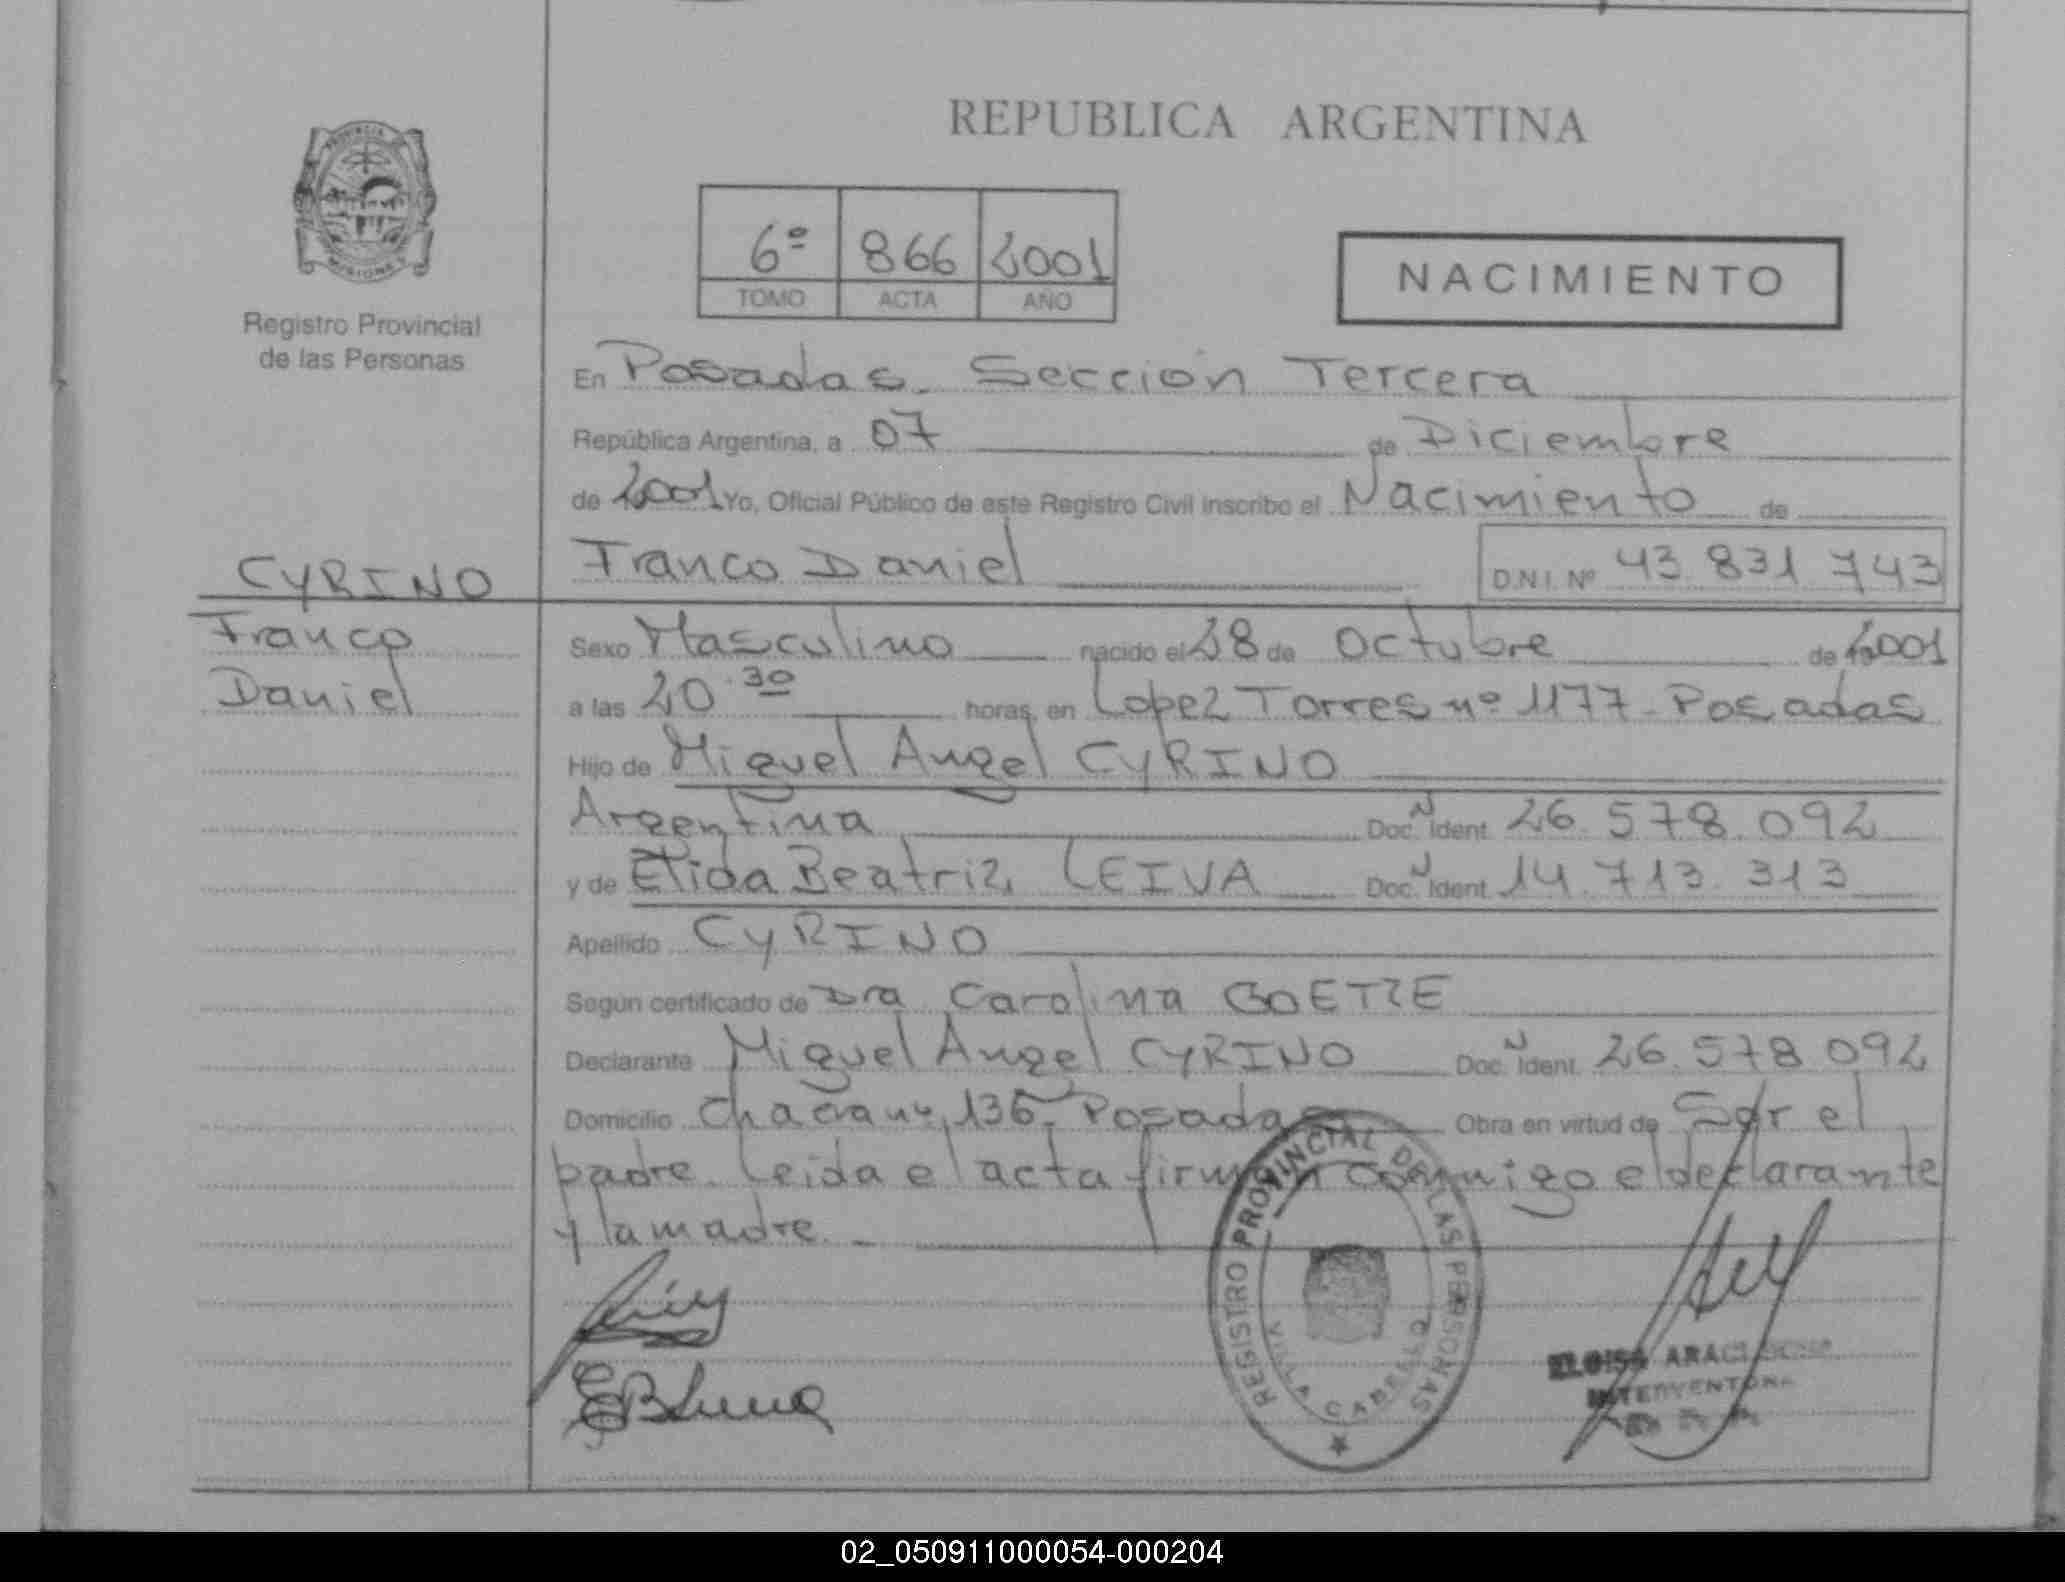 REPUBLICA ARGENTINA
PROVINCIA
MISIONES
Registro Provincial
de las Personas
6º 866 2001
TOMO ACTA AÑO
NACIMIENTO
En Posadas. Sección Tercera
República Argentina, a 07 de Diciembre
de 2001 Yo, Oficial Público de este Registro Civil inscribo el Nacimiento de
CYRINO
Franco Daniel D.N.I. Nº 43 831 743
Franco
Daniel
Sexo Masculino nacido el 28 de Octubre de 2001
a las 20.30 horas, en Lopez Torres nº 1177 - Posadas
Hijo de Miguel Angel CYRINO
Argentina Doc. Ident. 26.578.092
y de Elida Beatriz LEIVA Doc. Ident. 14.713.313
Apellido CYRINO
Según certificado de Dra Carolina GOETZE
Declarante Miguel Angel CYRINO Doc. Ident. 26.578 092
Domicilio Chacra nº 136 - Posadas Obra en virtud de Ser el
padre. Leida el acta firman conmigo el declarante
y la madre. -
REGISTRO PROVINCIAL DE LAS PERSONAS
VILLA CABELLO
ELOISA
INTERVENTORA
02_050911000054-000204